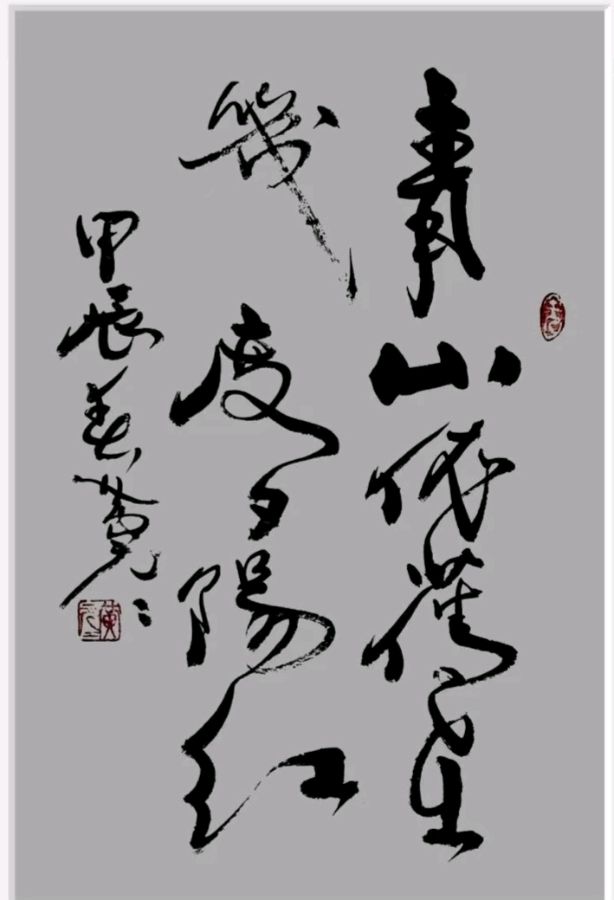 青山依舊在
幾度夕陽红
甲辰春